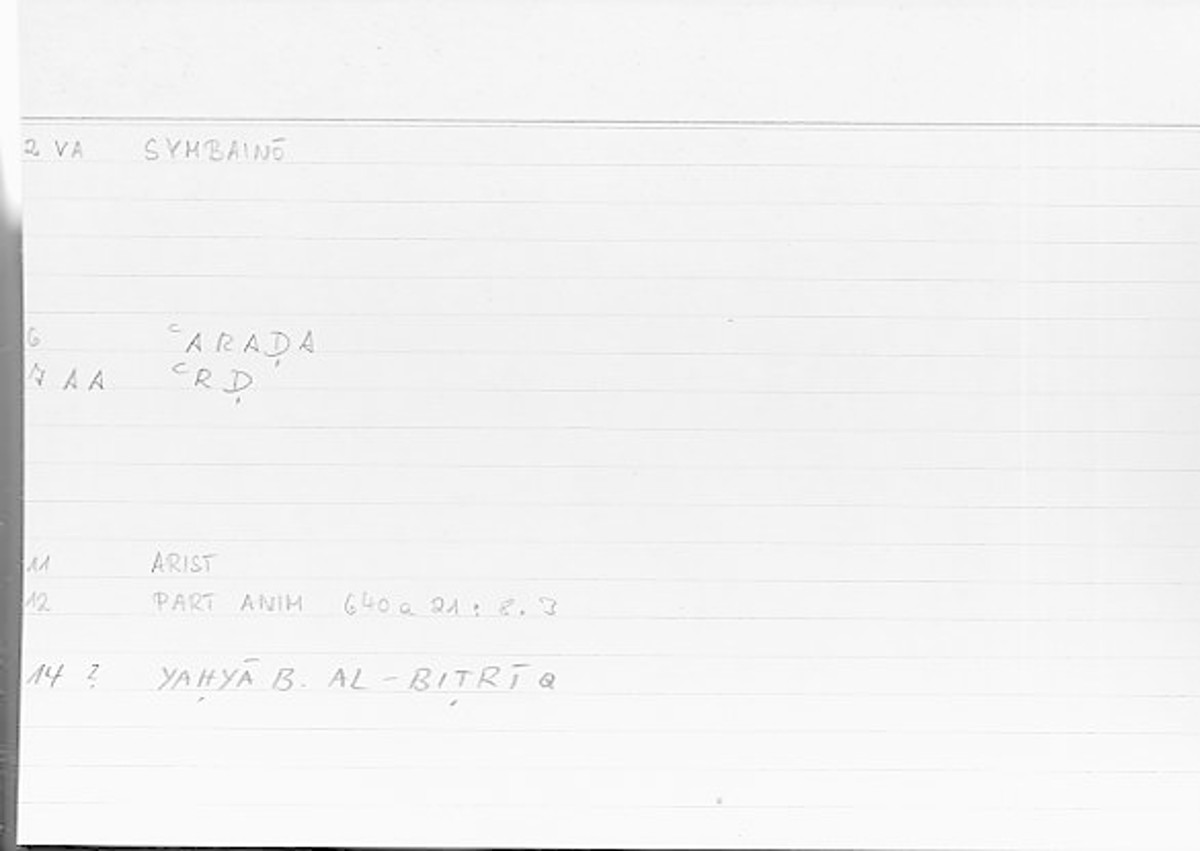 2 VA SYMBAINŌ
6 ʿARAḌA
7 AA ʿRḌ
11 ARIST
12 PART ANIM 640a 21 : 8.3
14 ? YAḤYĀ B. AL-BIṬRĪQ